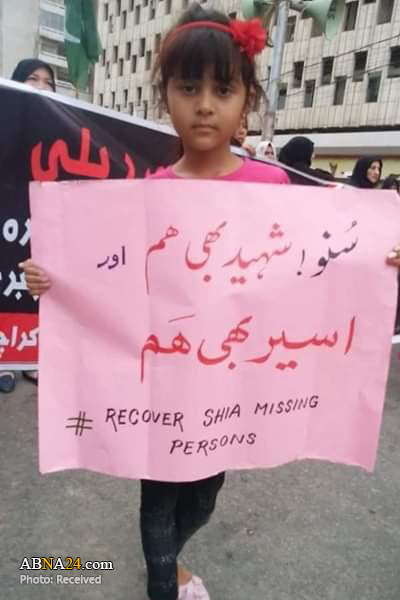 ریلی
کراچ
سُنو! شہید بھی ھم اور
اسیر بھی ھَم
# RECOVER SHIA MISSING
PERSONS
ABNA24.com
Photo: Received